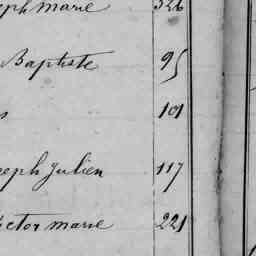 eph marie 326
Baptiste 95
s 101
seph Julien 117
ictor marie 221